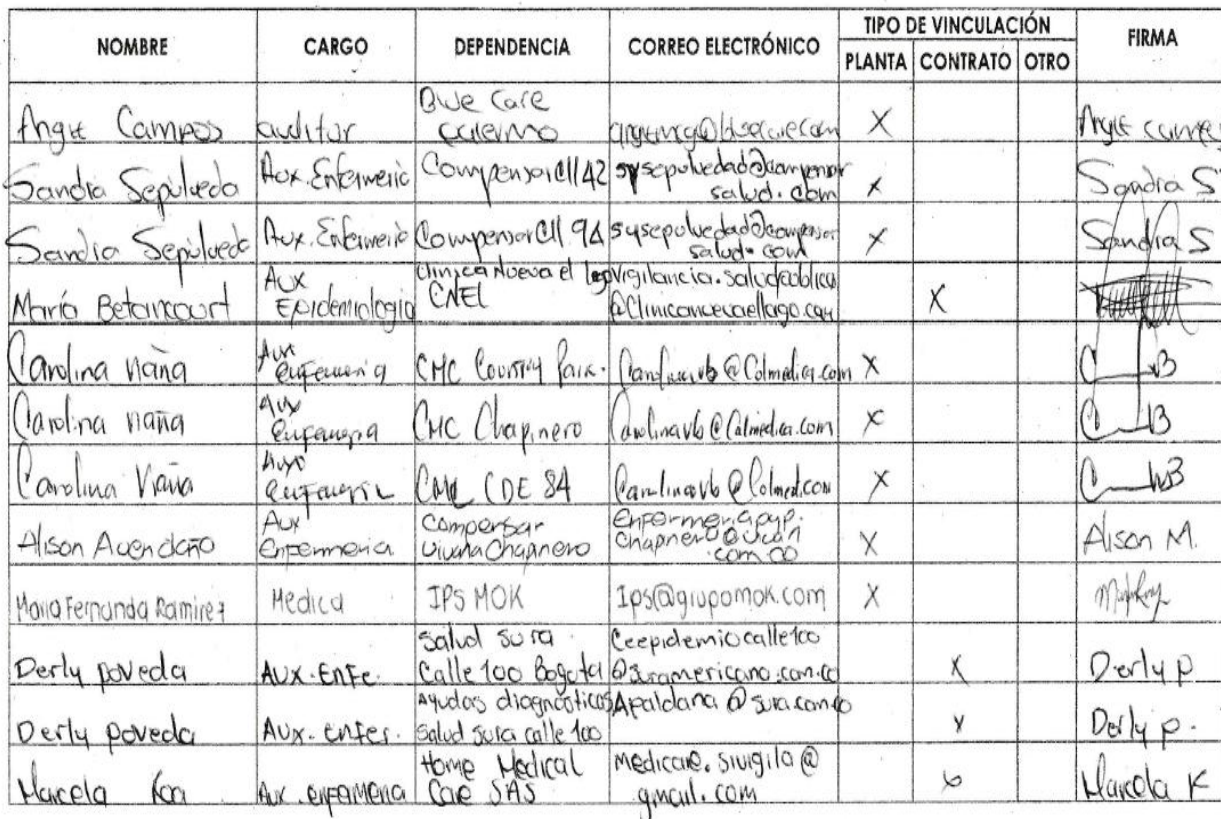 NOMBRE CARGO DEPENDENCIA CORREO ELECTRÓNICO TIPO DE VINCULACIÓN FIRMA
PLANTA CONTRATO OTRO
Angie Campos auditor Blue Care palermo X Angie
Sandra Sepúlveda Aux. Enfermeria Compensar Cll 42 sysepulvedad@compensarsalud.com X Sandra S
Sandra Sepúlveda Aux. Enfermeria Compensar Cll 94 sysepulvedad@compensarsalud.com X Sandra S
María Betancourt Aux Epidemiologia Clinica Nueva el lago CNEL vigilancia.saludpublica@clinicanuevaellago.com X
Carolina Viaña Aux enfermeria CMC Country Carolinavb@Colmedica.com X
Carolina Viaña Aux enfermeria CMC Chapinero Carolinavb@Colmedica.com X
Carolina Viaña Aux enfermeria CMC CDE 84 Carolinavb@Colmed.com X
Alison Avendaño Aux Enfermeria Compensar Viviana Chapinero X Alison M.
Maria Fernanda Ramirez Medica IPS MOK Ips@grupomok.com X
Derly poveda Aux. Enfe. Salud sura Calle 100 Bogota Ceepidemiocalle100@suramericana.com.co X Derly p
Derly poveda Aux. enfer. Ayudas diagnósticas Salud sura calle 100 Apaldana@sura.com.co X Derly p.
Marcela Roa Aux. enfermeria Home Medical Care SAS medicare.sivigila@gmail.com X Marcela R